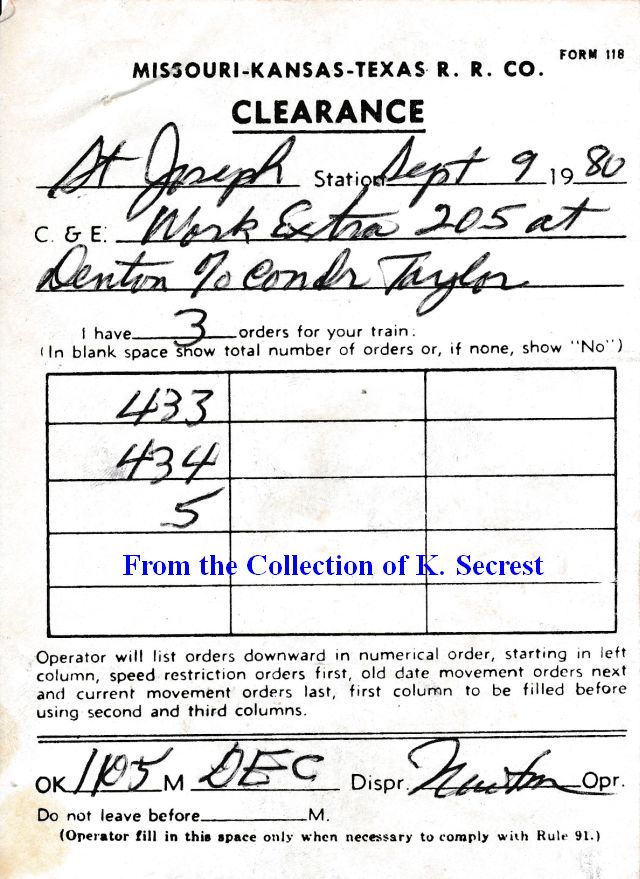 FORM 118
MISSOURI-KANSAS-TEXAS R. R. CO.
CLEARANCE
St Joseph Station Sept 9 1980
C. & E. Work Extra 205 at
Denton % Condr Taylor
I have 3 orders for your train.
(In blank space show total number of orders or, if none, show "No")
433
434
5
From the Collection of K. Secrest
Operator will list orders downward in numerical order, starting in left
column, speed restriction orders first, old date movement orders next
and current movement orders last, first column to be filled before
using second and third columns.
OK 1105 M DEC Dispr. Newton Opr.
Do not leave before M.
(Operator fill in this space only when necessary to comply with Rule 91.)